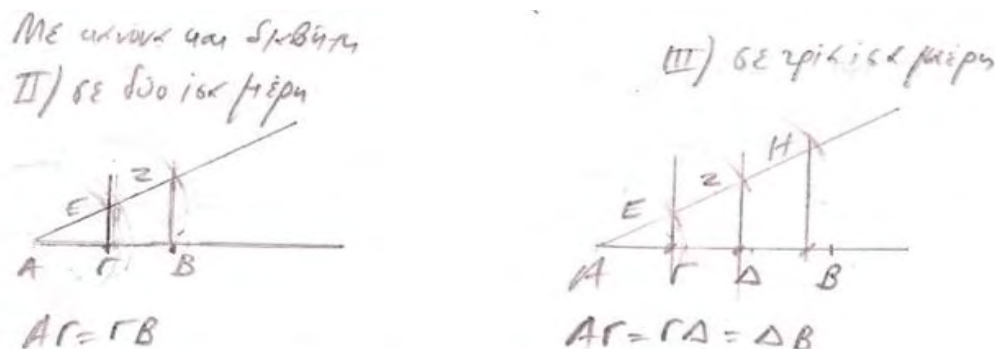 Με κανόνα και διαβήτη
II) σε δύο ίσα μέρη
Ε Ζ
Α Γ Β
ΑΓ = ΓΒ
III) σε τρία ίσα μέρη
Ε Ζ Η
Α Γ Δ Β
ΑΓ = ΓΔ = ΔΒ